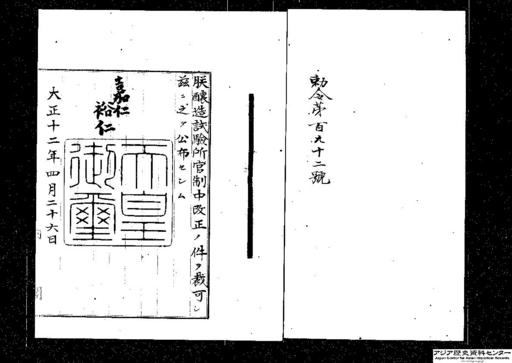 勅令第百九十二號
朕醸造試驗所官制中改正ノ件ヲ裁可シ
茲ニ之ヲ公布セシム
嘉仁
裕仁
天皇御璽
大正十二年四月二十六日
アジア歴史資料センター
Japan Center for Asian Historical Records